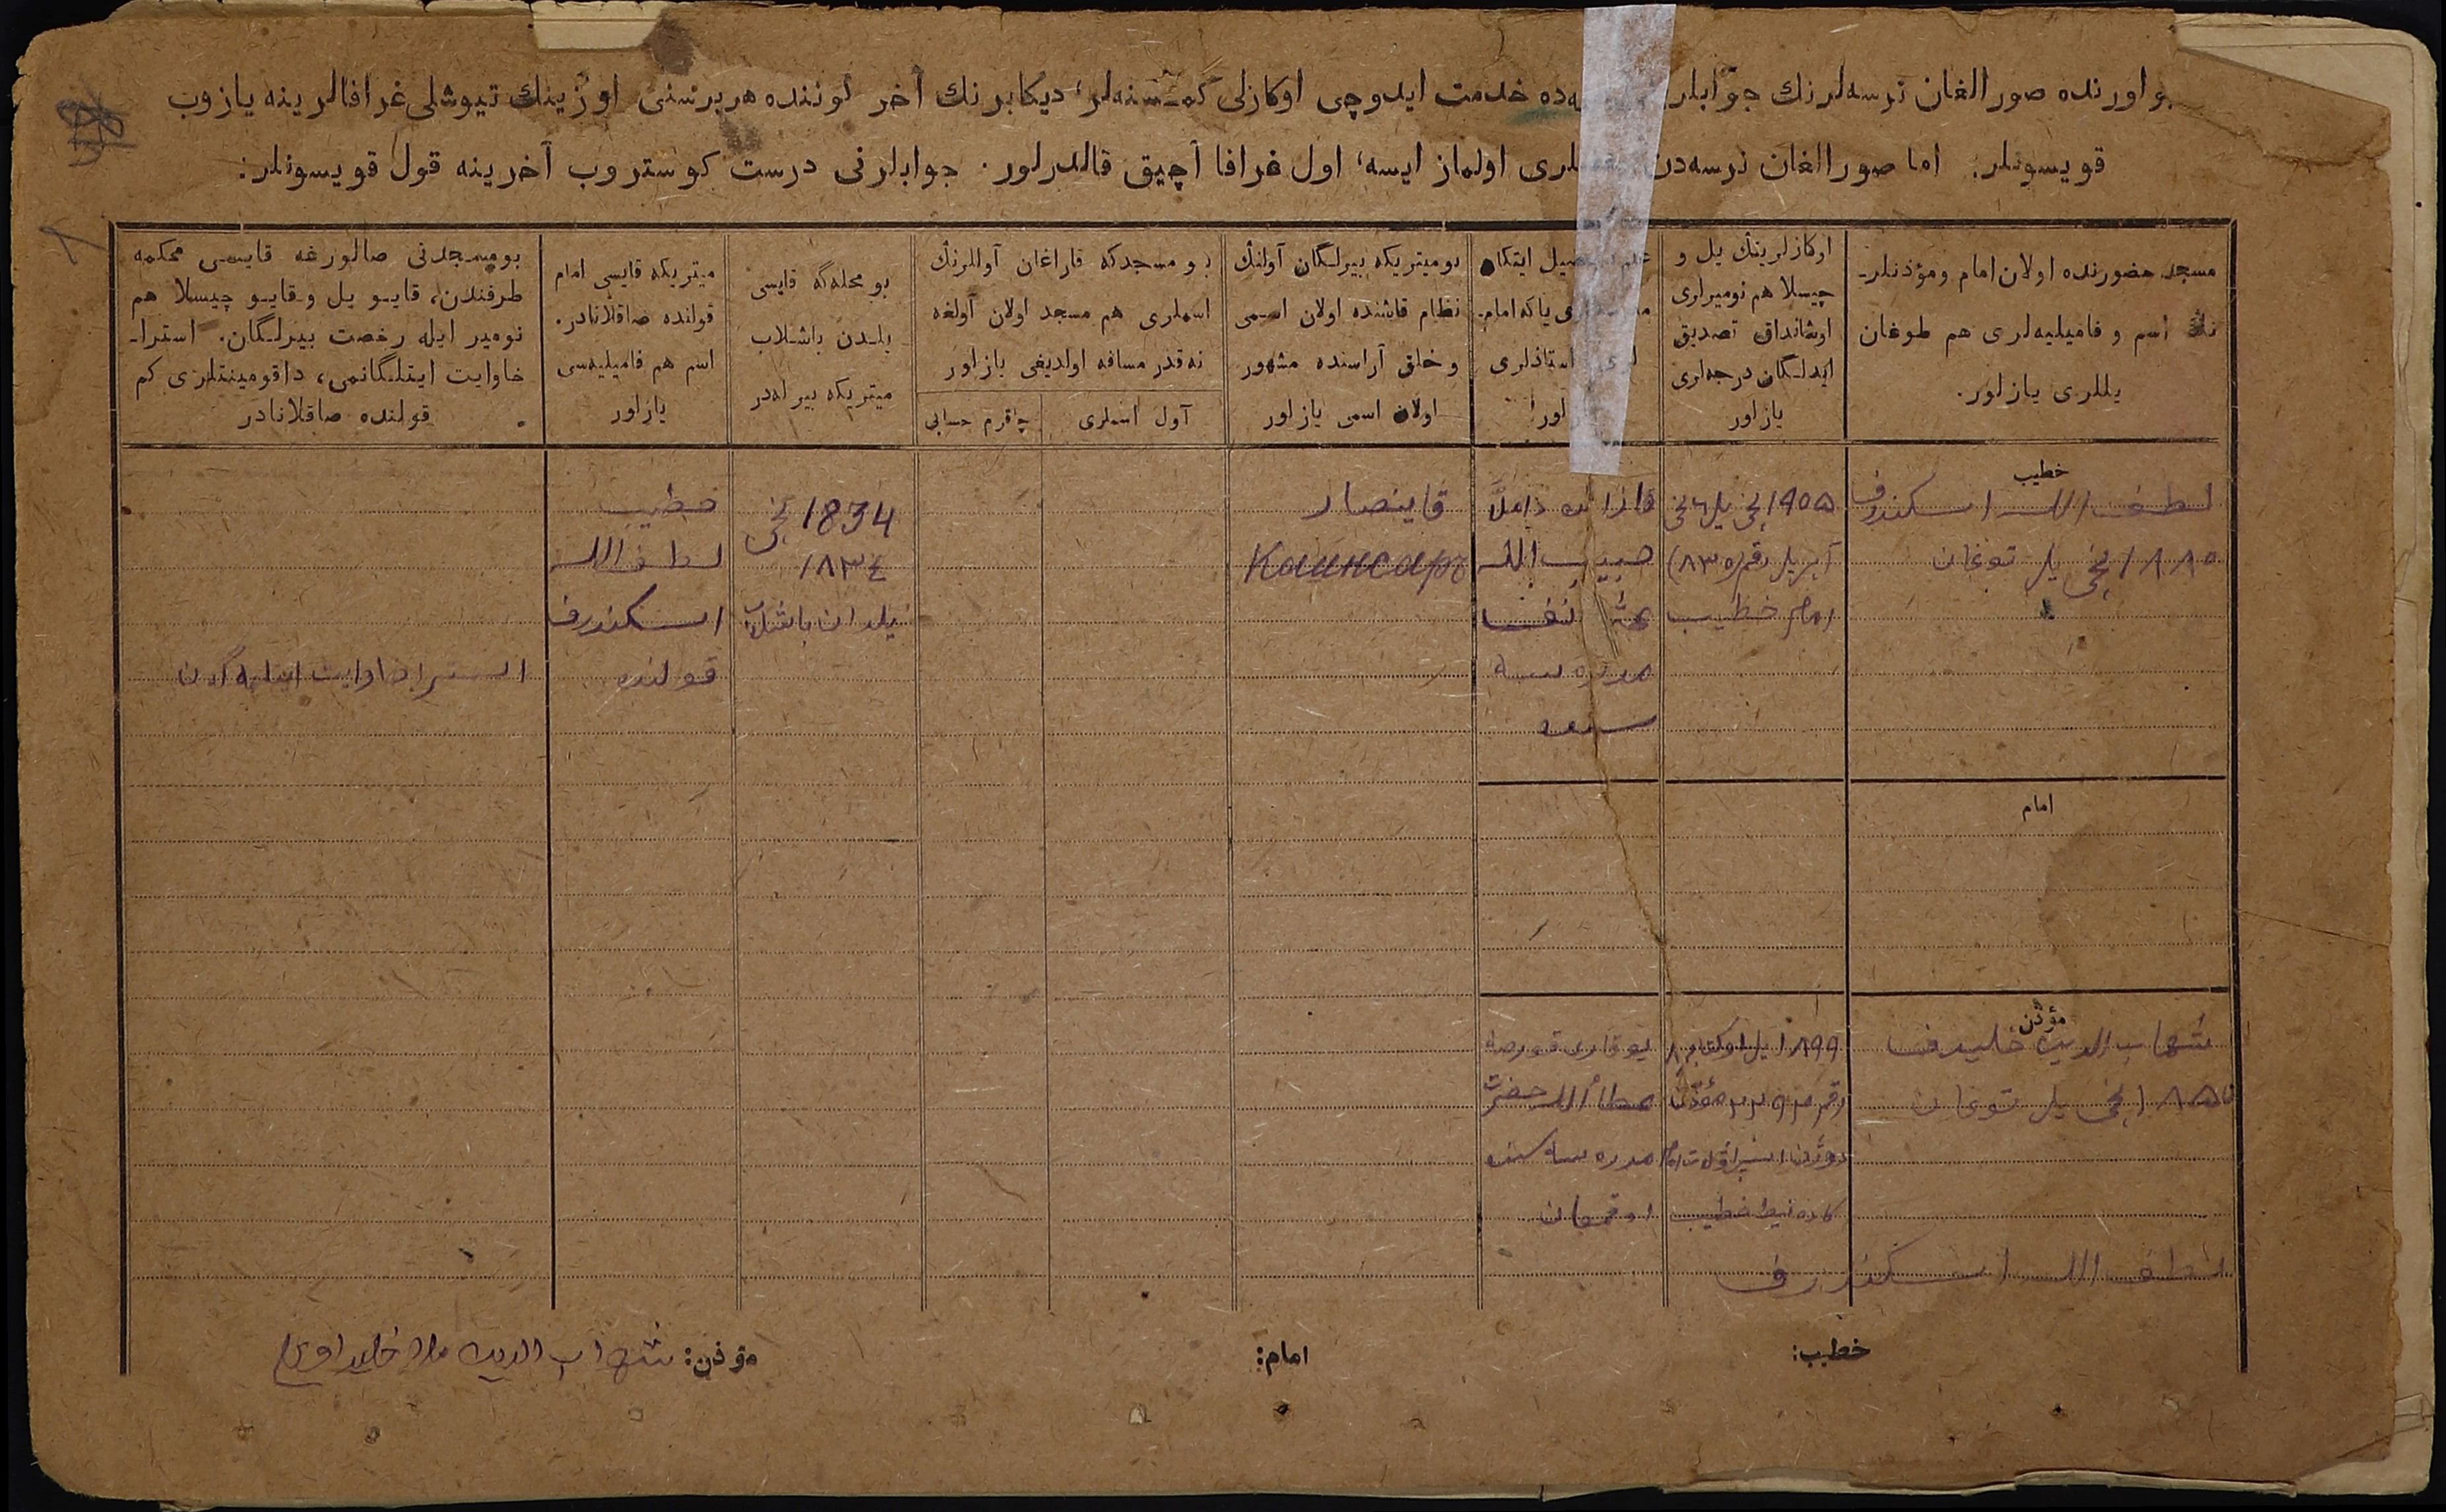 بو اورنده صورالغان نرسه‌لرنك جوابلر ه‌ده خدمت ایدوچی اوكازلی كمسنه‌لر، دیكابرنك آخر كوننده هر برسنی اوزینك تیوشلی غرافالرینه یازوب
قویسونلر. اما صورالغان نرسه‌دن لری اولماز ایسه، اول غرافا آچیق قالدرلور. جوابلرنی درست كوستروب آخرینه قول قویسونلر.
مسجد حضورنده اولان امام ومؤذنلر-
نك اسم و فامیلیه‌لری هم طوغان
یللری یازلور.
اوكازلرینك یل و
چیسلا هم نومیرلری
اوشانداق تصدیق
ایدلگان درجه‌لری
یازلور
علم تحصیل ایتكان
یاكه امام-
استاذلری
لور
بو میتریكه بیرلگان آولنك
نظام قاشنده اولان اسمی
و خلق آراسنده مشهور
اولان اسمی یازلور
بو مسجدكه قاراغان آوللرنك
اسملری هم مسجد اولان آولغه
نه قدر مسافه اولدیغی یازلور
آول اسملری
چاقرم حسابی
بو محله‌گه قایسی
یلدن باشلاب
میتریكه بیرله‌در
میتریكه قایسی امام
قولنده صاقلانادر.
اسم هم فامیلیه‌سی
یازلور
بو مسجدنی صالورغه قایسی محكمه
طرفندن، قایو یل و قایو چیسلا هم
نومیر ایله رخصت بیرلگان. استرا-
خاوایت ایتلگانمی، داقومینتلری كم
قولنده صاقلانادر
خطیب
لطف الله اسكندروف
۱۸۸۰ نچی یل توغان
۱۹۰۵ نچی یل نچی
آپریل رقم (۸۳۵)
امام خطیب
قازانده داملا
حبیب الله
مدرسه
سنده
قاینصار
Каинсаръ
1834 نچی
۱۸۳٤
یلدان باشلاب
خطیب
لطف الله
اسكندروف
قولنده
استراخاوایت ایتلمه‌گان
امام
مؤذن
شهاب الدین خلیدف
۱۸۵۷ نچی یل توغان
یوقاری قورصه
عطاء الله حضرت
مدرسه سنده
اوقوغان
لطف الله اسكندروف
خطیب:
امام:
مؤذن: شهاب الدین ملا خلیداوف